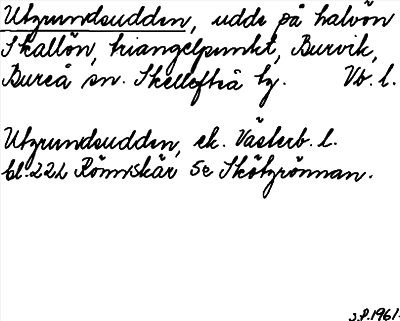 Utgrundsudden, udde på halvön
Skallön, triangelpunkt, Burvik,
Bureå sn. Skellefteå tg. Vb. l.
Utgrundsudden, ek. Västerb. l.
bl. 22 L Rönnskär Se Skötgrönnan.
S.P. 1961.